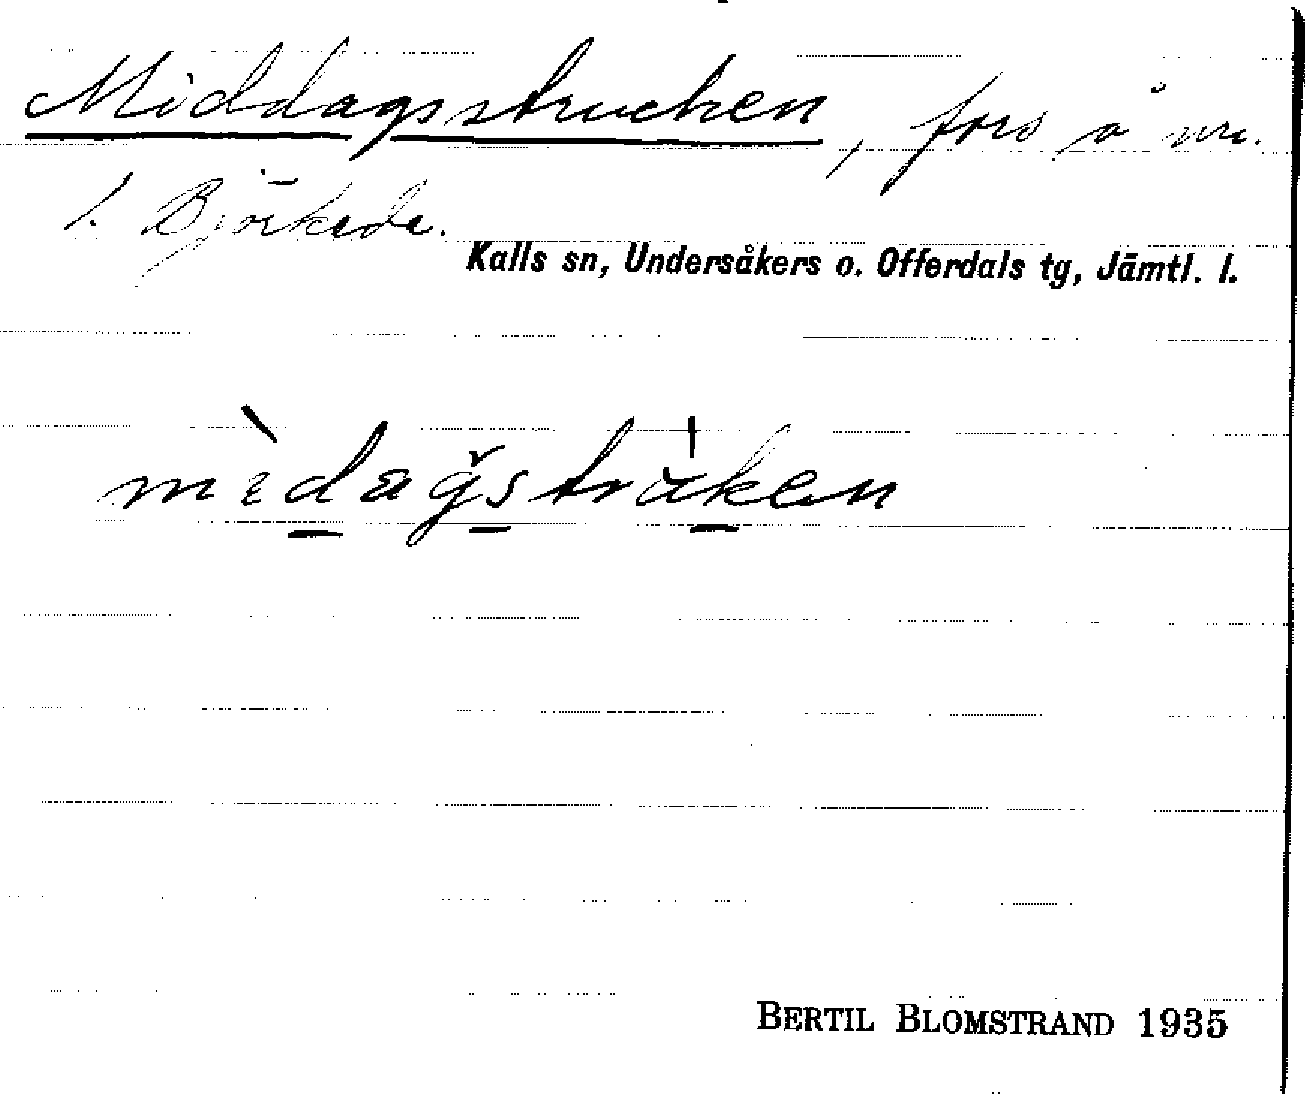 Middagstrucken, fors å nr.
1. Björkede.
Kalls sn, Undersåkers o. Offerdals tg, Jämtl. l.
BERTIL BLOMSTRAND 1935